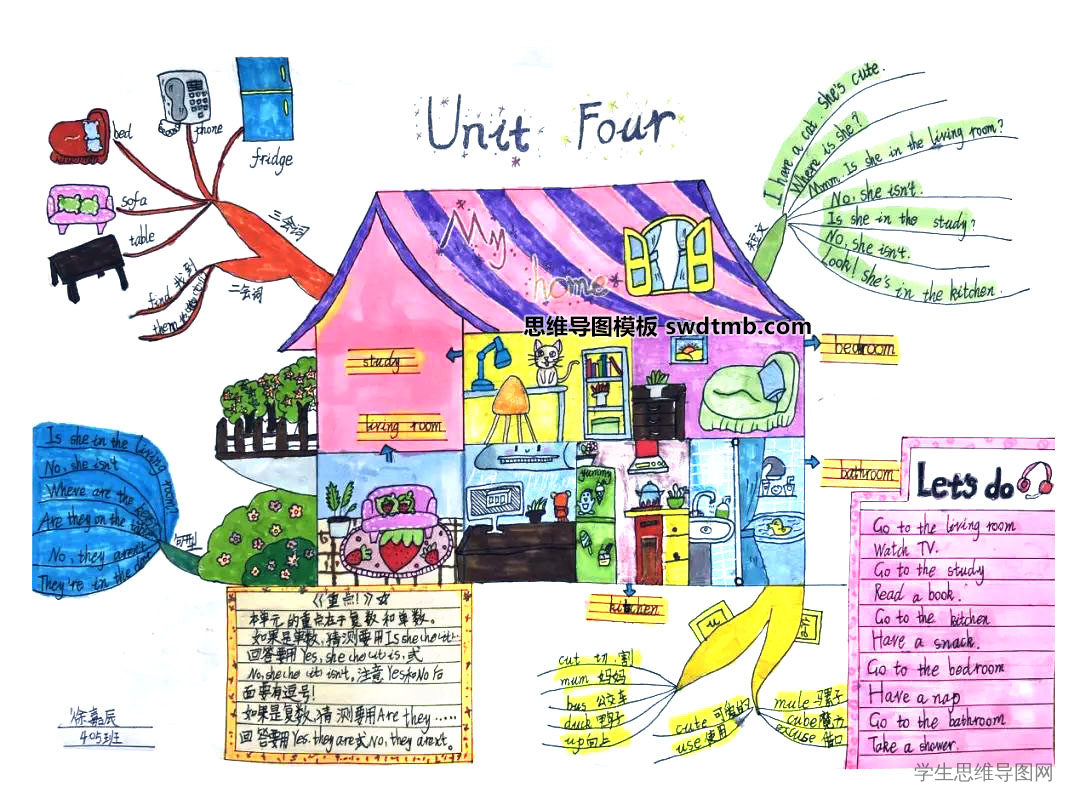 Unit Four
My
home
思维导图模板 swdtmb.com
phone
bed
fridge
sofa
table
三会词
二会词
find 找到
them
课文
I have a cat. she's cute.
Where is she?
Mmm. Is she in the living room?
No, she isn't.
Is she in the study?
No, she isn't.
Look! she's in the kitchen.
study
living room
bedroom
bathroom
kitchen
Yummy
句型
Is she in the living room?
No, she isn't
Where are the
Are they on the
No, they aren't
They're in the
《重点!》
本单元的重点在于复数和单数。
如果是单数,猜测要用Is she he it…
回答要用Yes, she he it is,或
No, she he it isn't。注意Yes和No后
面要有逗号!
如果是复数,猜测要用Are they……
回答要用Yes. they are或No, they aren't。
徐嘉辰
405班
u
cut 切.割
mum 妈妈
bus 公交车
duck 鸭子
up 向上
cute 可爱的
use 使用
mule 马骡子
cube 魔方
excuse 借口
Let's do
Go to the living room
Watch TV.
Go to the study
Read a book.
Go to the kitchen
Have a snack.
Go to the bedroom
Have a nap
Go to the bathroom
Take a shower.
学生思维导图网